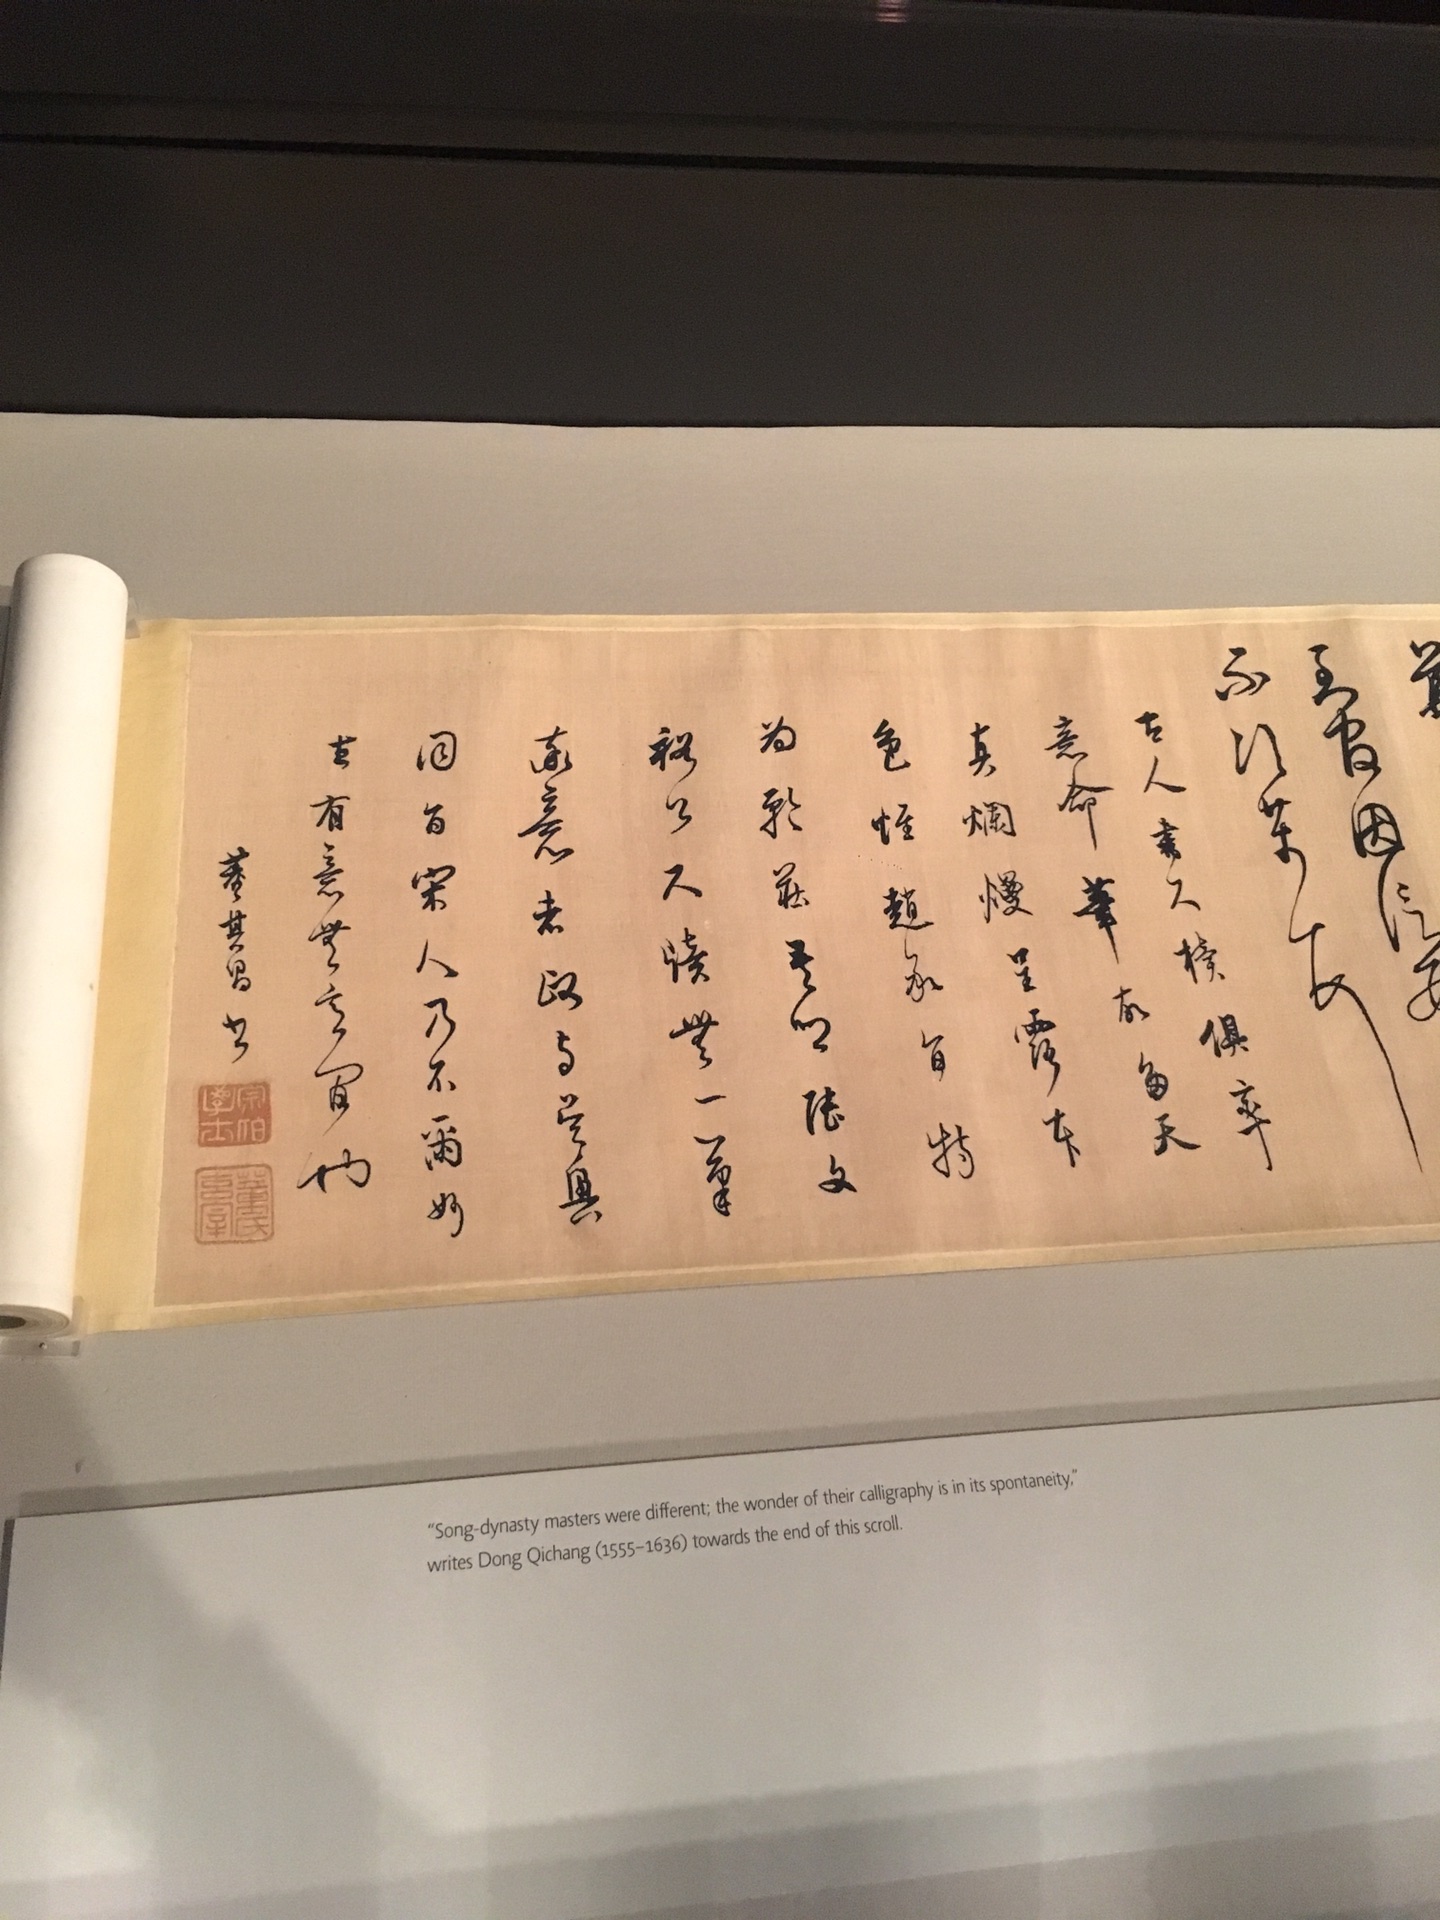 古人書尺牘俱率
意命筆故多天
真爛熳呈露本
色惟趙承旨特
為矜莊吾郡陸文
裕公尺牘無一筆
意者政與吳興
同旨宋人乃不爾妙
在有意無意間也
董其昌書
宗伯學士
董氏玄宰
“Song-dynasty masters were different; the wonder of their calligraphy is in its spontaneity,”
writes Dong Qichang (1555–1636) towards the end of this scroll.